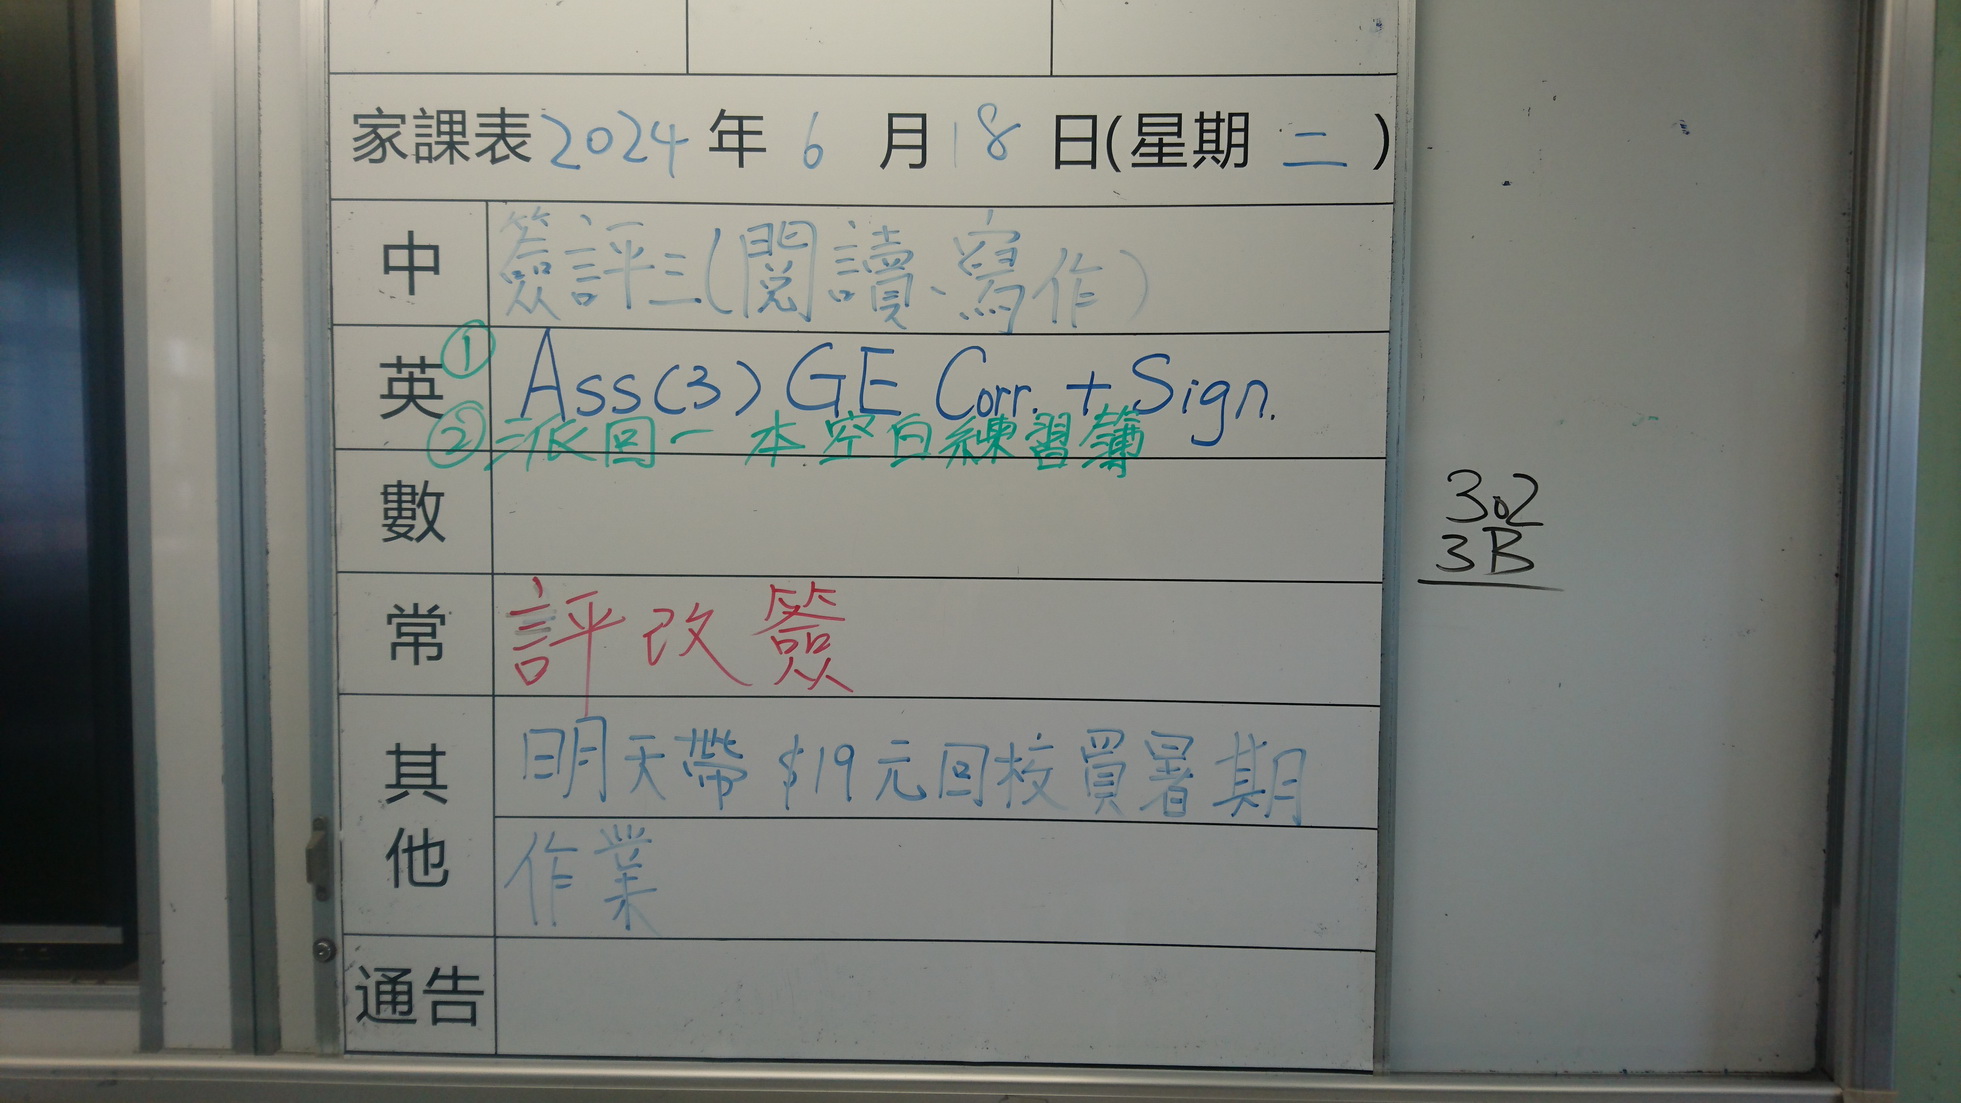 家課表 2024 年 6 月 18 日(星期 二 )
中 簽評三(閱讀、寫作)
英 ① Ass(3) GE Corr. + Sign.
② 派回一本空白練習簿
數
常 評改簽
其他 明天帶 $19元回校買暑期
作業
通告
302
3B